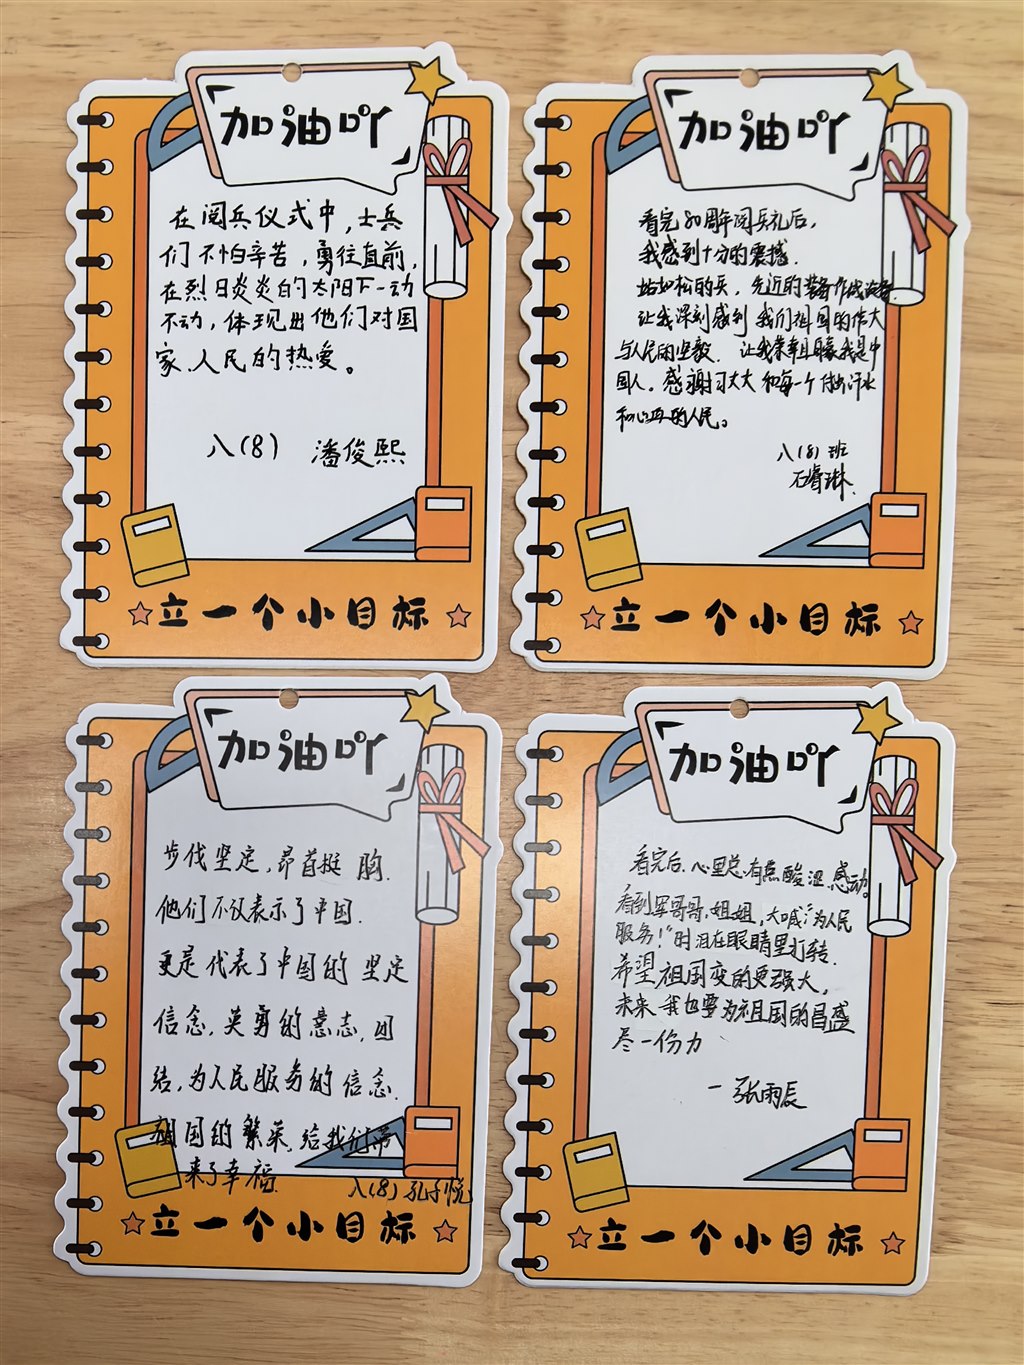 加油吖
在阅兵仪式中,士兵
们不怕辛苦,勇往直前,
在烈日炎炎的太阳下一动
不动,体现出他们对国
家、人民的热爱。
八(8) 潘俊熙
立一个小目标
加油吖
看完80周年阅兵礼后,
我感到十分的震撼.
站如松的兵,先近的装备
让我深刻感到我们祖国的伟大
与人民的坚毅. 让我荣幸且自豪我是中
国人。感谢习大大和每一个付出汗水
和心血的人民。
八(8)班
石睿琳.
立一个小目标
加油吖
步伐坚定,昂首挺胸.
他们不仅表示了中国.
更是代表了中国的坚定
信念,英勇的意志,团
结,为人民服务的信念.
祖国的繁荣,给我们带
来了幸福.
八(8)孔子悦
立一个小目标
加油吖
看完后,心里总有点酸涩,感动。
看到军哥哥,姐姐,大喊:“为人民
服务!”时泪在眼睛里打转.
希望祖国变的更强大,
未来我也要为祖国的昌盛
尽一份力
一张雨辰
立一个小目标